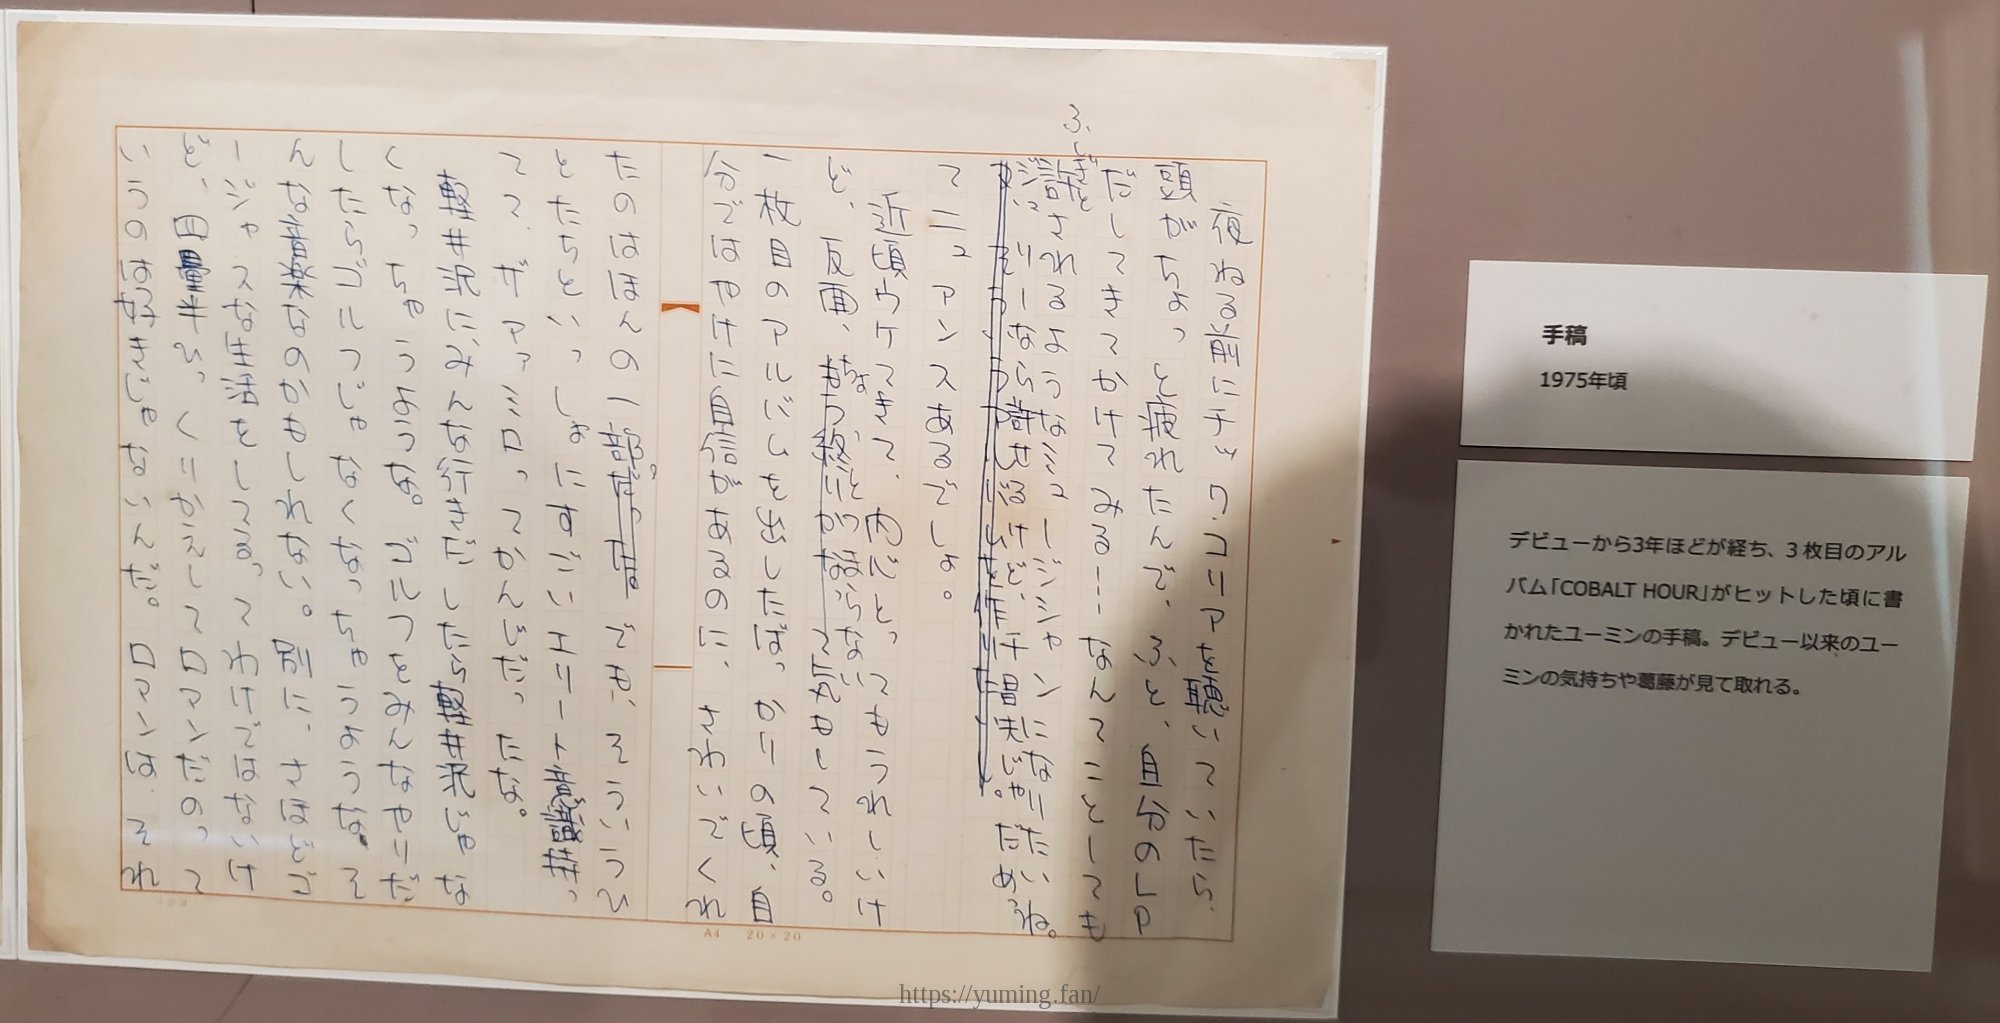 夜ねる前にチック・コリアを聴いていたら、
頭がちょっと疲れたんで、ふと、自分のLP
だしてきてかけてみる--- なんてことしても
許されるようなミュージシャンになりたいね。
ジュリーなら許せるけど、
じゃだめ。
てニュアンスあるでしょ。
近頃ウケてきて、内心とってもうれしいけ
ど、反面、ちょっとつまらない
気もしている。
一枚目のアルバムを出したばっかりの頃、自
分ではやけに自信があるのに、さわいでくれ
たのはほんの一部。でも、そういうひ
とたちといっしょにすごいエリート意識もっ
てて、ザァァミロってかんじだったな。
軽井沢に、みんな行きだしたら軽井沢じゃな
くなっちゃうような。ゴルフをみんなやりだ
したらゴルフじゃなくなっちゃうような。そ
んな音楽なのかもしれない。別に、さほどゴ
ージャスな生活をしてるってわけではないけ
ど、目半びっくりかえしてロマンだのって
いうのは好きじゃないんだ。ロマンは、それ
A4 20×20
手稿
1975年頃
デビューから3年ほどが経ち、3枚目のアル
バム「COBALT HOUR」がヒットした頃に書
かれたユーミンの手稿。デビュー以来のユー
ミンの気持ちや葛藤が見て取れる。
https://yuming.fan/